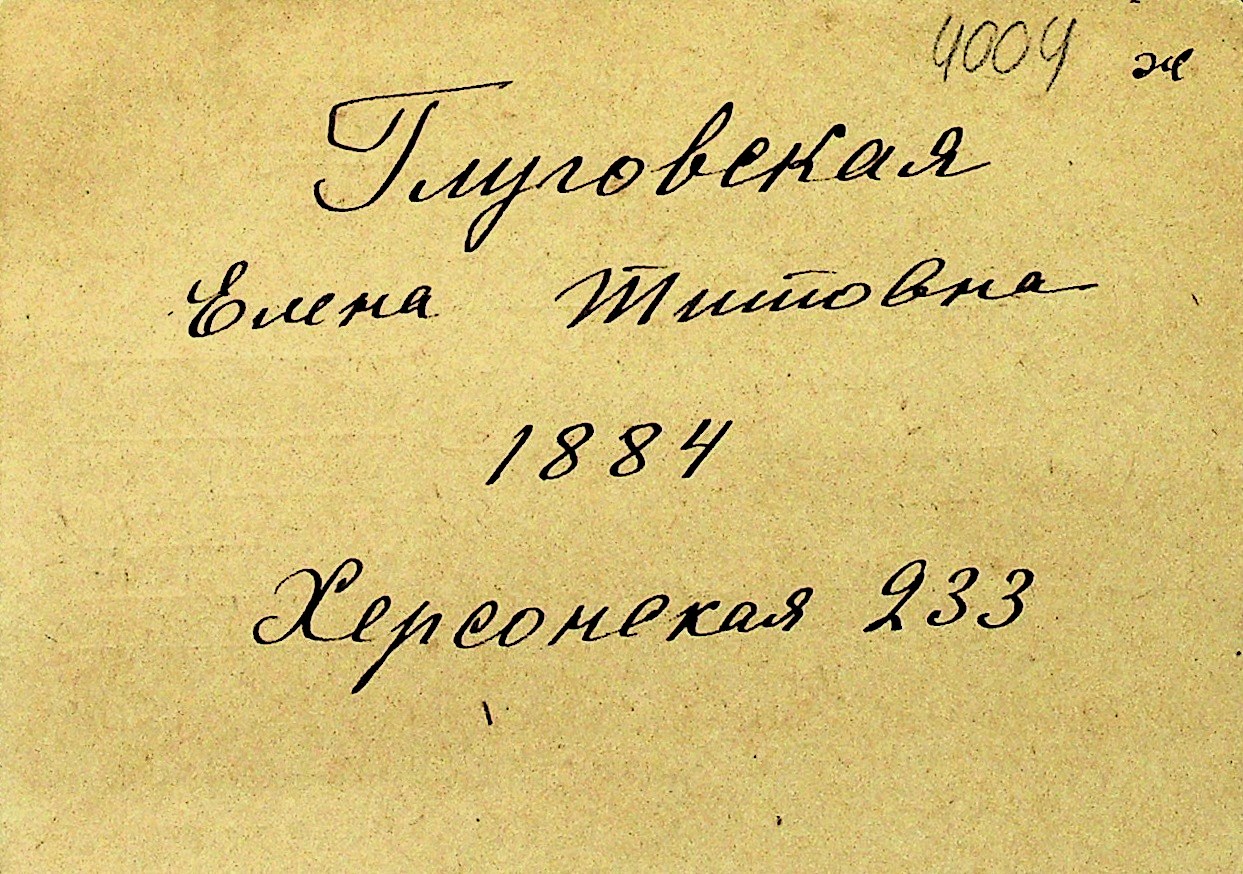 4004 ж
Глуговская
Елена Титовна
1884
Херсонская 233